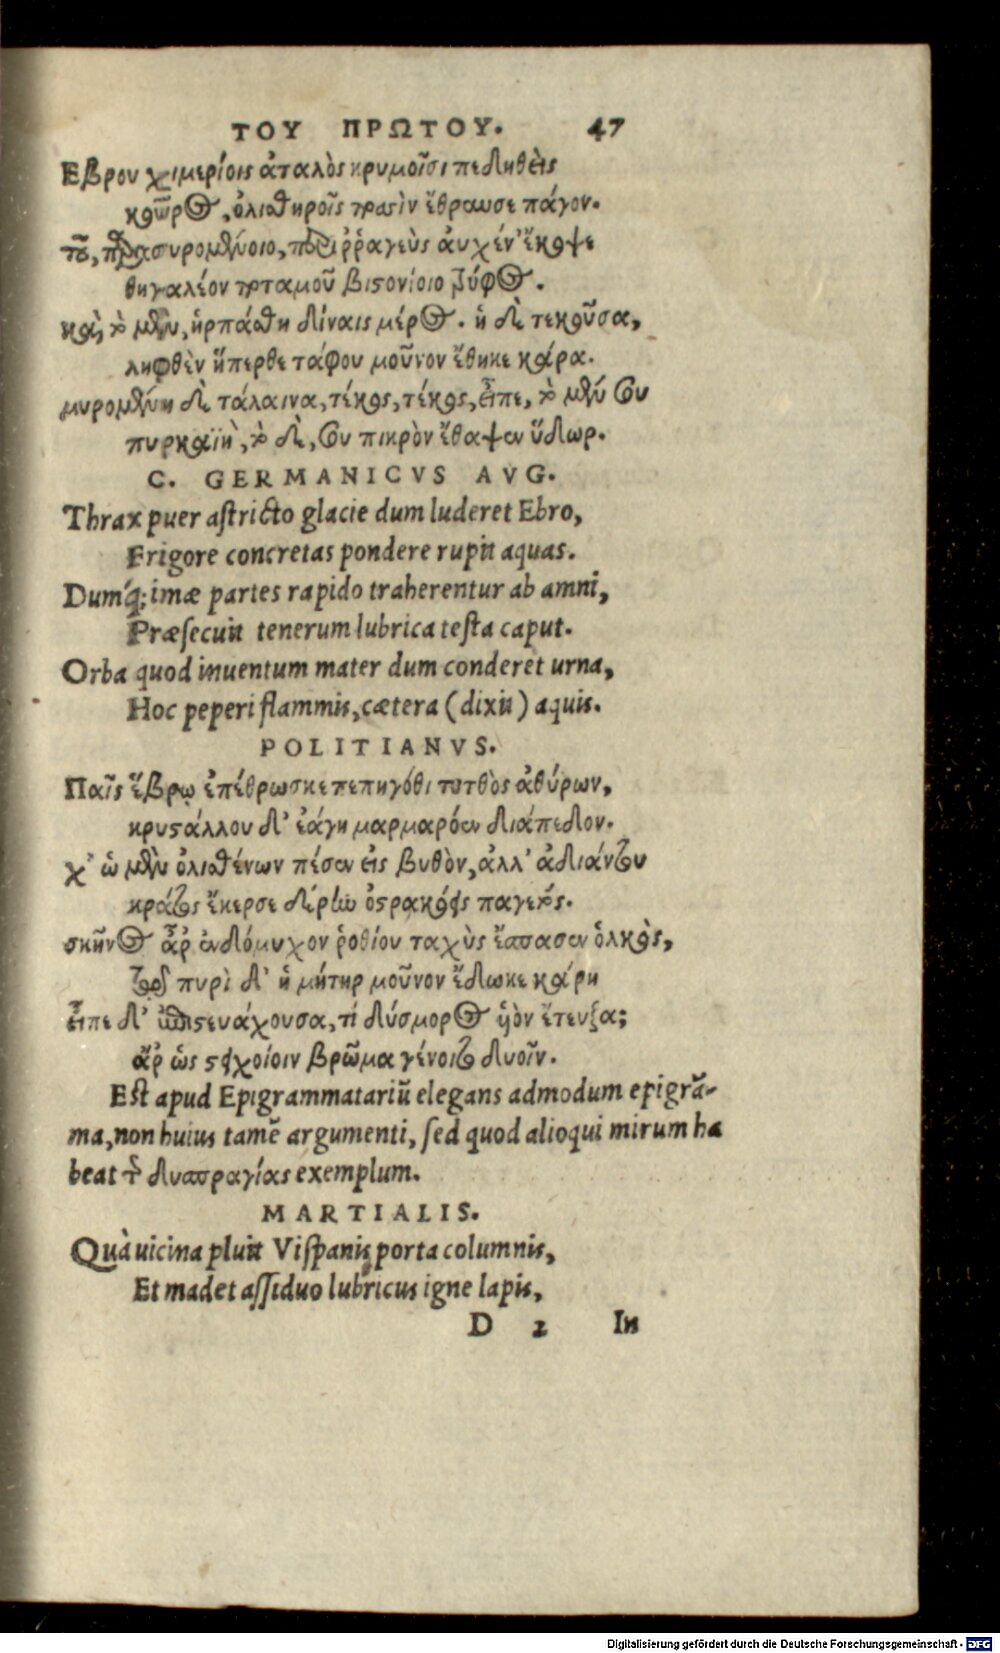 ΤΟΥ ΠΡΩΤΟΥ. 47
Εβρου χιμερίοις ἀταλὸς κρυμοῖσι πεδηθεὶς
κοῦρος, ὀλισθηροῖς ποσὶν ἔθραυσε πάγον.
τοῦ, παρασυρομένοιο, περιῤῥαγεὺς αὐχέν' ἔκοψε
θηγαλέον ποταμοῦ βιστονίοιο τρύφος.
καὶ, τὸ μὲν, ἡρπάσθη δίναις μέρος. ἡ δὲ τεκοῦσα,
ληφθὲν ὕπερθε τάφου μοῦνον ἔθηκε κάρα.
μυρομένη δὲ τάλαινα, τέκος, τέκος, εἶπε, τὸ μέν σου
πυρκαϊὴ, τὸ δὲ, σου πικρὸν ἔθαψεν ὕδωρ.
C. GERMANICVS AVG.
Thrax puer astricto glacie dum luderet Ebro,
Frigore concretas pondere rupit aquas.
Dumq́; imæ partes rapido traherentur ab amni,
Præsecuit tenerum lubrica testa caput.
Orba quod inuentum mater dum conderet urna,
Hoc peperi flammis, cætera (dixit) aquis.
POLITIANVS.
Παῖς ἕβρῳ ἐπέθρωσκε πεπηγότι τυτθὸς ἀθύρων,
κρυστάλλου δ' ἐάγη μαρμαρόεν διάπεδον.
χ' ὡ μὲν ὀλισθένων πέσεν εἰς βυθὸν, ἀλλ' ἀδιάντου
κρατὸς ἔκερσε δέρην ὀστρακόεις παγετός.
σκῆνος ἄρ ἐνδόμυχον ῥοθίου ταχὺς ἔσπασεν ὁλκὸς,
πυρὶ δ' ἡ μήτηρ μοῦνον ἔδωκε κάρη
εἶπε δ' ἐπιστενάχουσα, τί δύσμορος υἱὸν ἔτευξα;
ἄρ ὡς στοιχοίοιν βρῶμα γένοιτο δυοῖν.
Est apud Epigrammatariũ elegans admodum epigrã-
ma, non huius tamẽ argumenti, sed quod alioqui mirum ha
beat τῆς δυσπραγίας exemplum.
MARTIALIS.
Quà uicina pluit Vispanis porta columnis,
Et madet assiduo lubricus igne lapis,
D 2 In
Digitalisierung gefördert durch die Deutsche Forschungsgemeinschaft - DFG